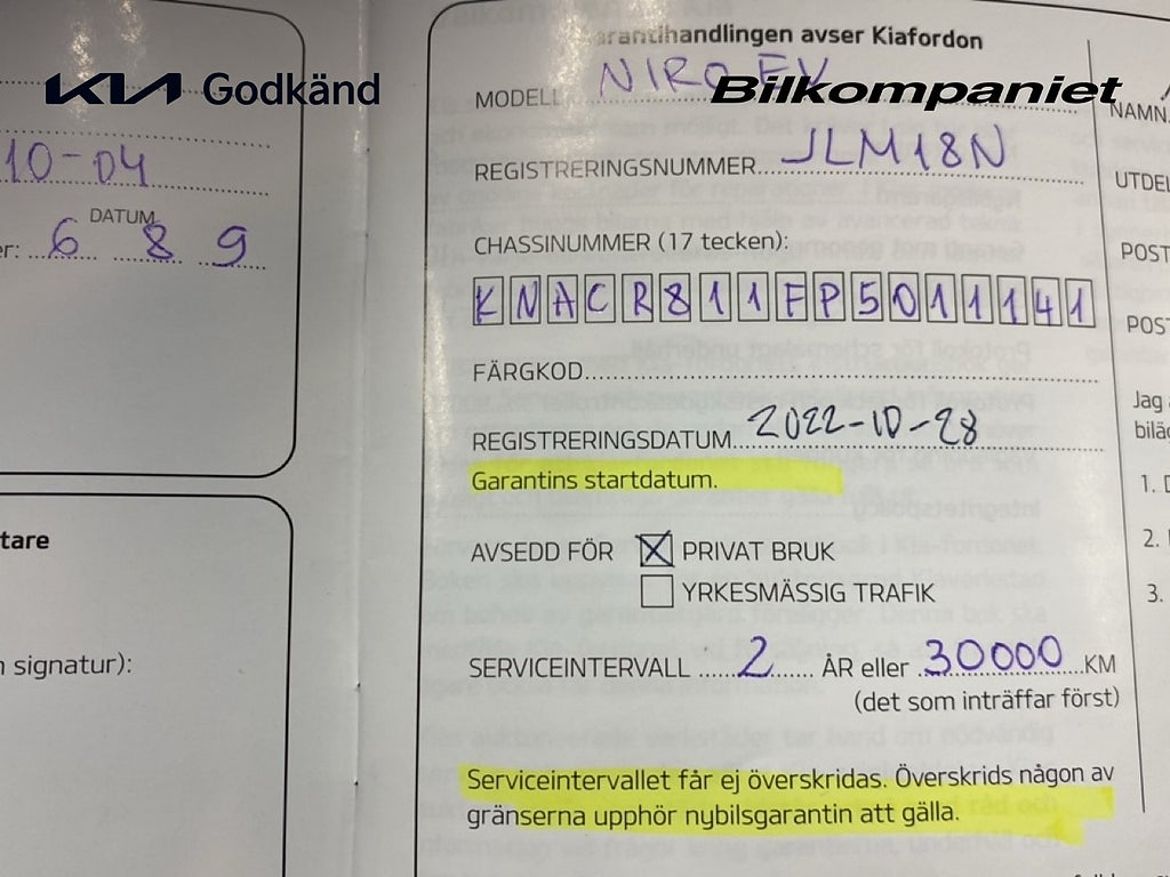 KIA Godkänd
Bilkompaniet
10-04
DATUM
er: 6 8 9
tare
signatur):
arantihandlingen avser Kiafordon
MODELL NIRO EV
REGISTRERINGSNUMMER JLM18N
CHASSINUMMER (17 tecken):
KNACR811FP5011141
FÄRGKOD
REGISTRERINGSDATUM 2022-10-28
Garantins startdatum.
AVSEDD FÖR ☒ PRIVAT BRUK
☐ YRKESMÄSSIG TRAFIK
SERVICEINTERVALL 2 ÅR eller 30000 KM
(det som inträffar först)
Serviceintervallet får ej överskridas. Överskrids någon av
gränserna upphör nybilsgarantin att gälla.
NAMN
UTDEL
POST
POST
Jag
bilä
1.
2.
3.